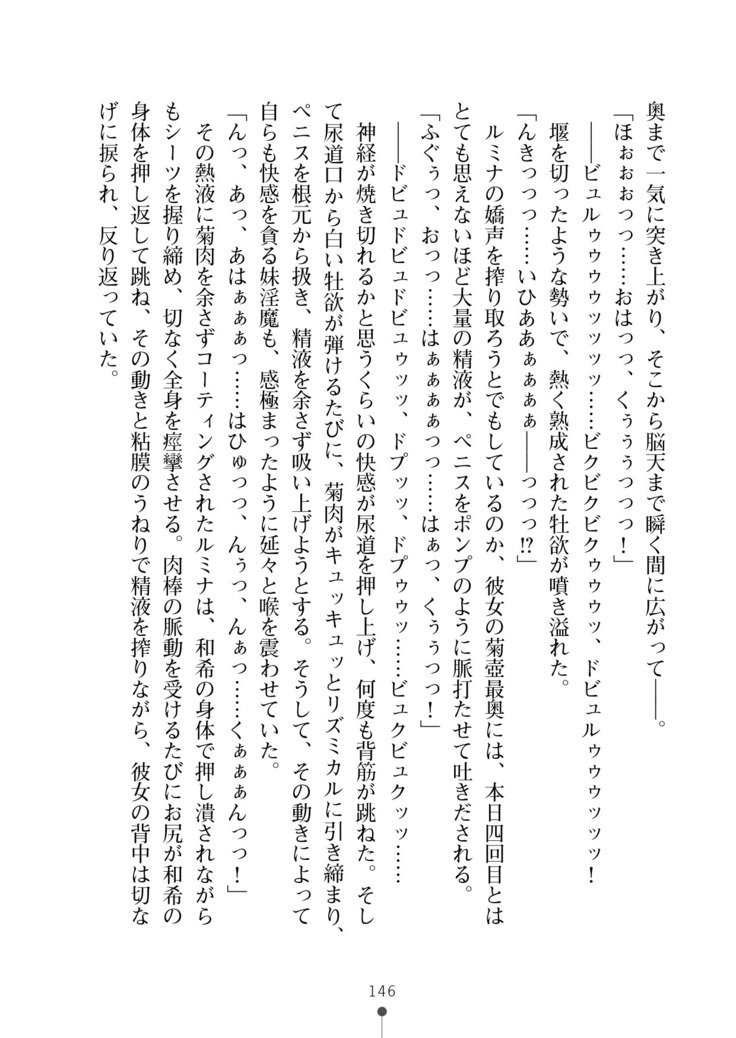 奥まで一気に突き上がり、そこから脳天まで瞬く間に広がって――。
「ほぉぉぉっっ……おはっっ、くぅぅぅっっっ！」
――ビュルゥゥゥゥッッッッ……ビクビクビクゥゥゥッ、ドビュルゥゥゥッッッ！
堰を切ったような勢いで、熱く熟成された牡欲が噴き溢れた。
「んきっっっ……いひああぁぁぁぁ――っっっ!?」
ルミナの嬌声を搾り取ろうとでもしているのか、彼女の菊壺最奥には、本日四回目とは
とても思えないほど大量の精液が、ペニスをポンプのように脈打たせて吐きだされる。
「ふぐぅっ、おっっ……はぁぁぁぁっっ……はぁっ、くぅぅっっ！」
――ドビュドビュドビュゥッッ、ドプッッ、ドプゥゥッ……ビュクビュクッッ……
神経が焼き切れるかと思うくらいの快感が尿道を押し上げ、何度も背筋が跳ねた。そし
て尿道口から白い牡欲が弾けるたびに、菊肉がキュッキュッとリズミカルに引き締まり、
ペニスを根元から扱き、精液を余さず吸い上げようとする。そうして、その動きによって
自らも快感を貪る妹淫魔も、感極まったように延々と喉を震わせていた。
「んっ、あっ、あはぁぁぁっ……はひゅっっ、んぅっ、んぁっ……くぁぁぁんっっ！」
その熱液に菊肉を余さずコーティングされたルミナは、和希の身体で押し潰されながら
もシーツを握り締め、切なく全身を痙攣させる。肉棒の脈動を受けるたびにお尻が和希の
身体を押し返して跳ね、その動きと粘膜のうねりで精液を搾りながら、彼女の背中は切な
げに捩られ、反り返っていた。
146